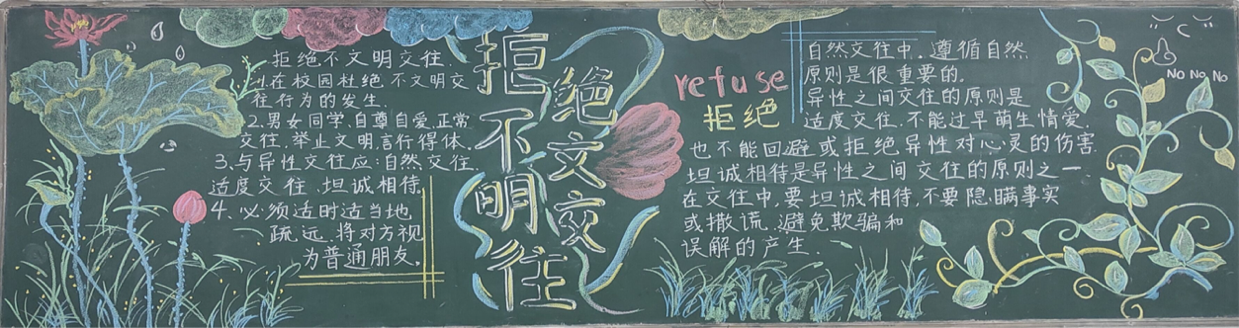 拒绝不文明交往
1.在校园杜绝不文明交
往行为的发生.
2.男女同学,自尊自爱,正常
交往,举止文明,言行得体.
3、与异性交往应:自然交往,
适度交往、坦诚相待
4、必须适时适当地
疏远,将对方视
为普通朋友.
拒绝不文明交往
refuse
拒绝
自然交往中,遵循自然
原则是很重要的.
异性之间交往的原则是
适度交往,不能过早萌生情爱,
也不能回避或拒绝异性对心灵的伤害.
坦诚相待是异性之间交往的原则之一.
在交往中,要坦诚相待,不要隐瞒事实
或撒谎,避免欺骗和
误解的产生.
No No No